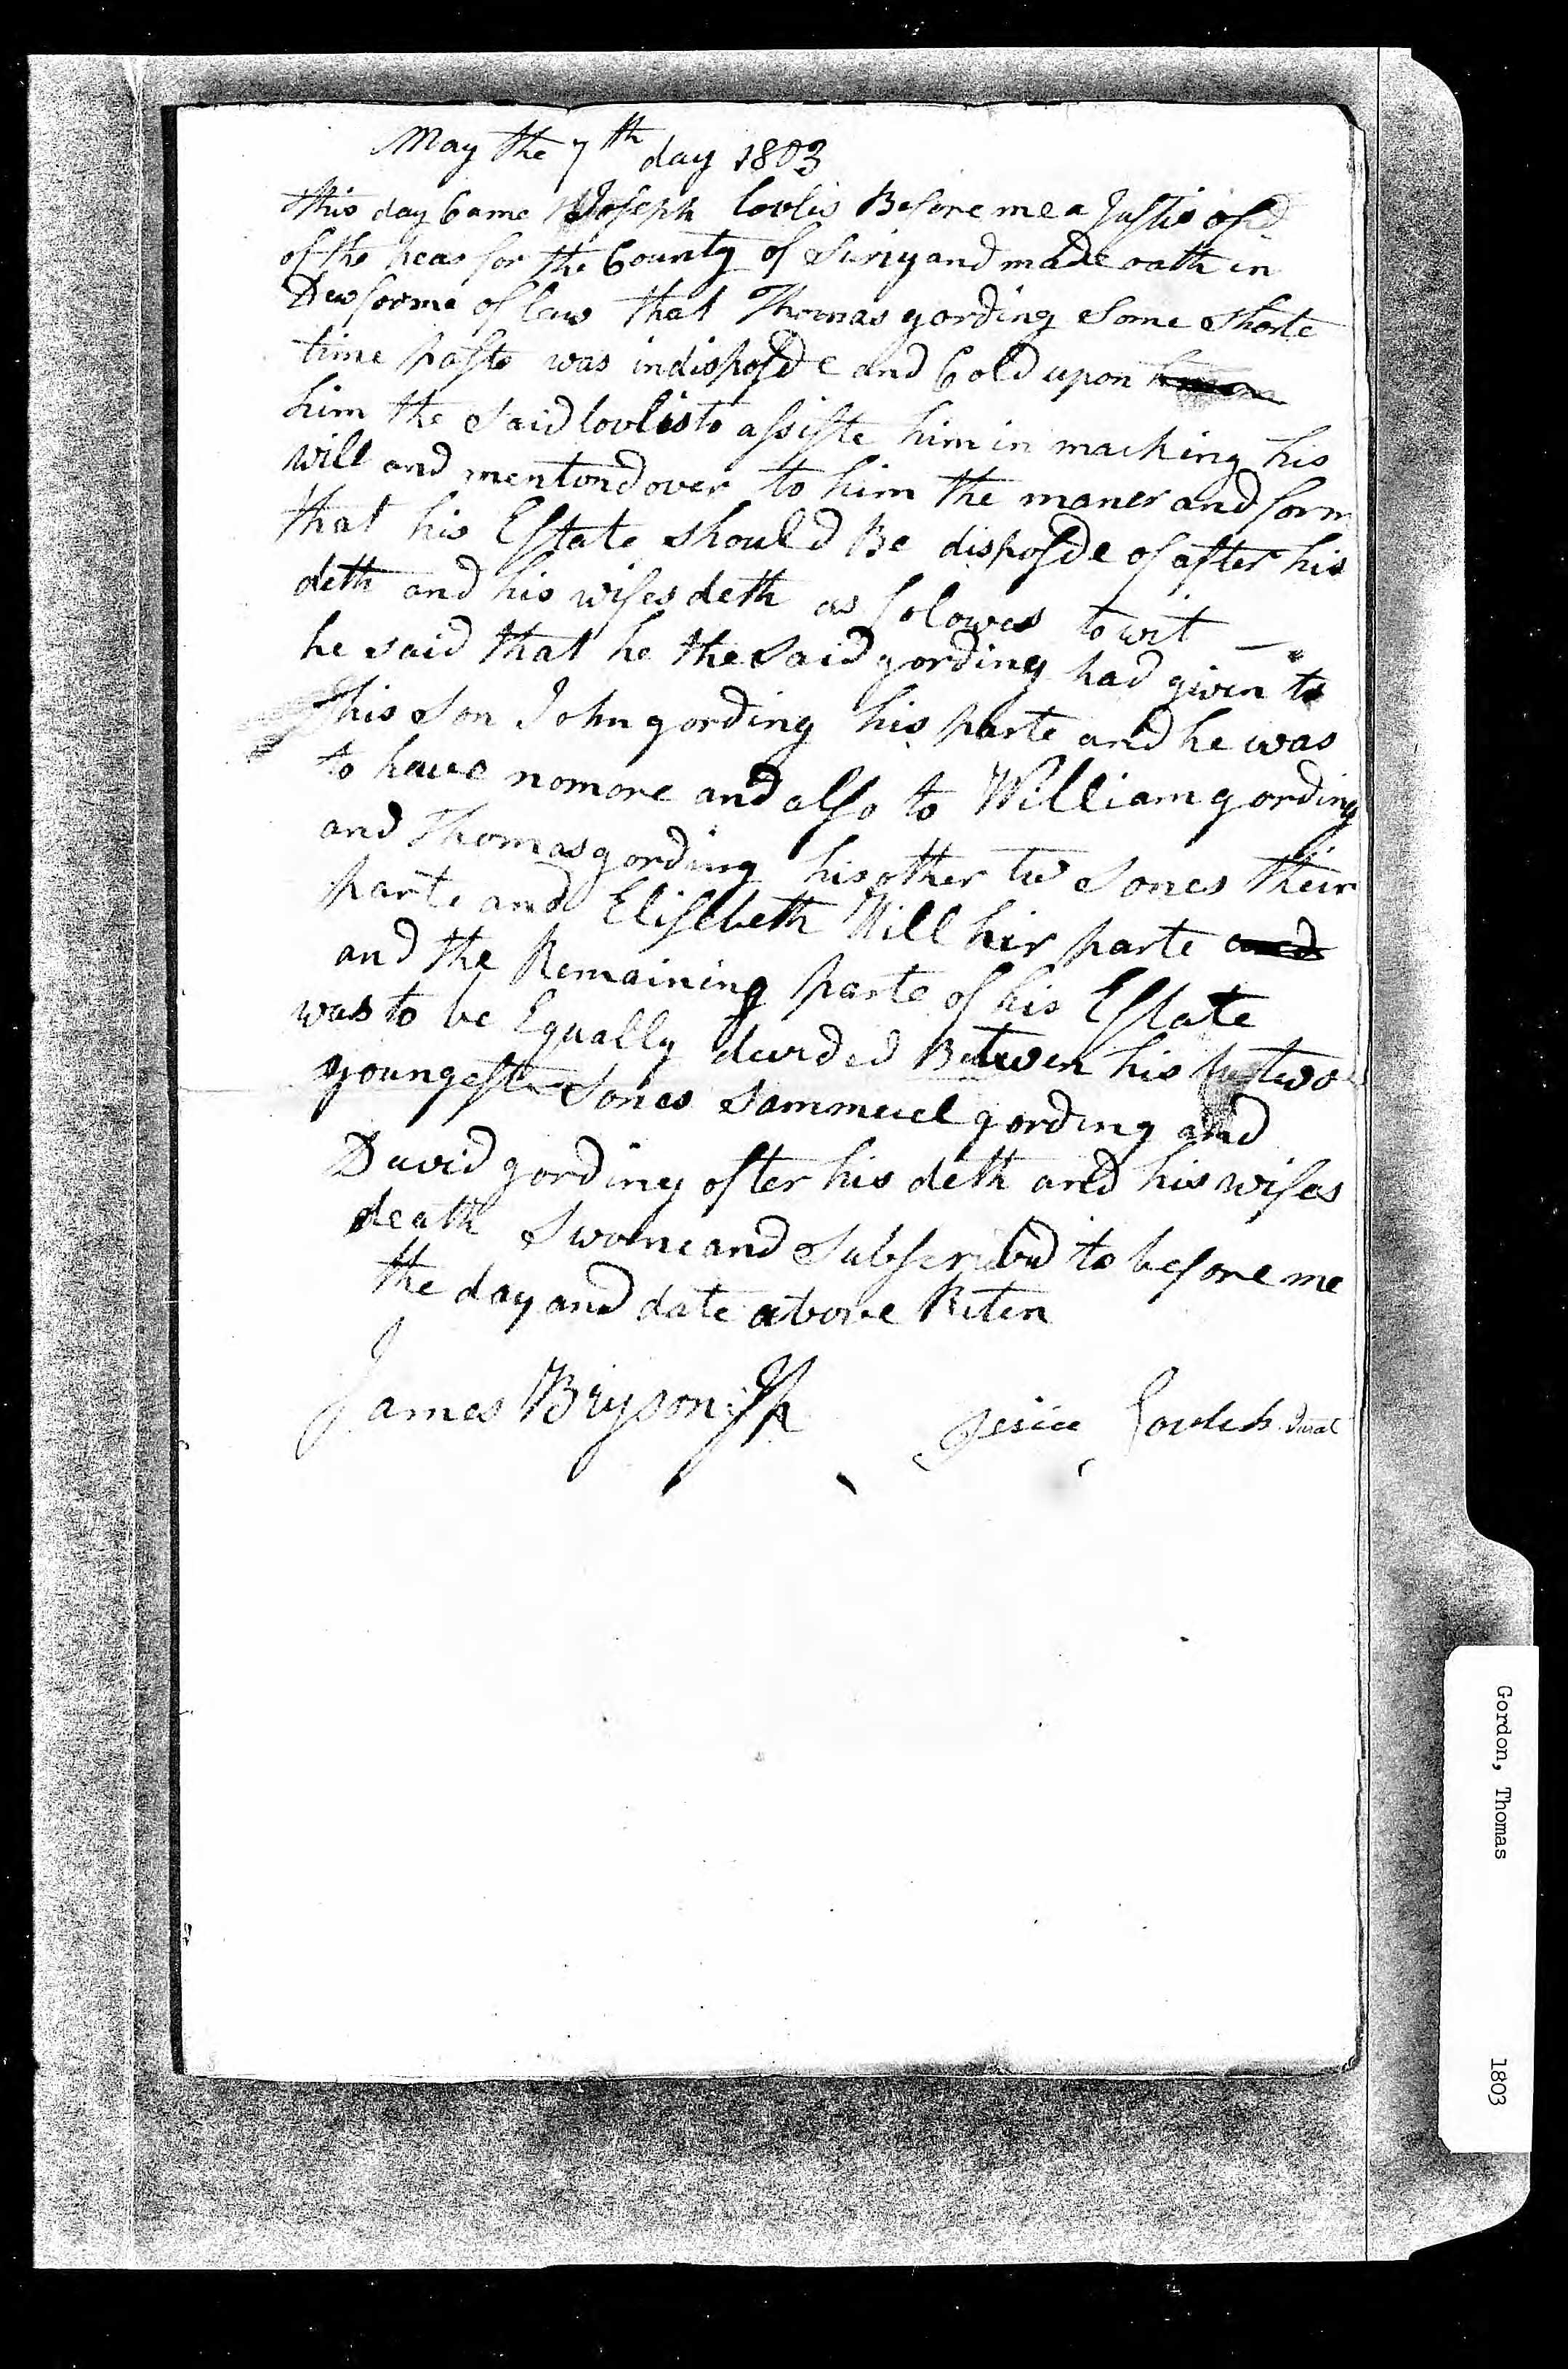 May the 7th day 1803
this day Came Joseph lovlis Before me a Justis of
of the peas for the County of Surry and made oath in
Dew forme of law that Thomas gording Some Shorte
time paste was indisposde and Cold upon
him the Said lovlis to assiste him in macking his
will and mentond over to him the maner and form
that his Estate should Be disposde of after his
deth and his wifes deth as folowes to wit
he said that he the Said gording had given to
his Son John gording his parte and he was
to have nomore and also to William gording
and Thomas gording his other two Sones their
parte and Elisebeth Hill hir parte and
and the Remaining parte of his Estate
was to be Equally devided Betwen his two
youngeste Sones Sammuel gording and
David gording after his deth and his wifes
death Sworne and Subscribd to before me
the day and date above Riten
James Bryson JP
Jurat
Gordon, Thomas 1803